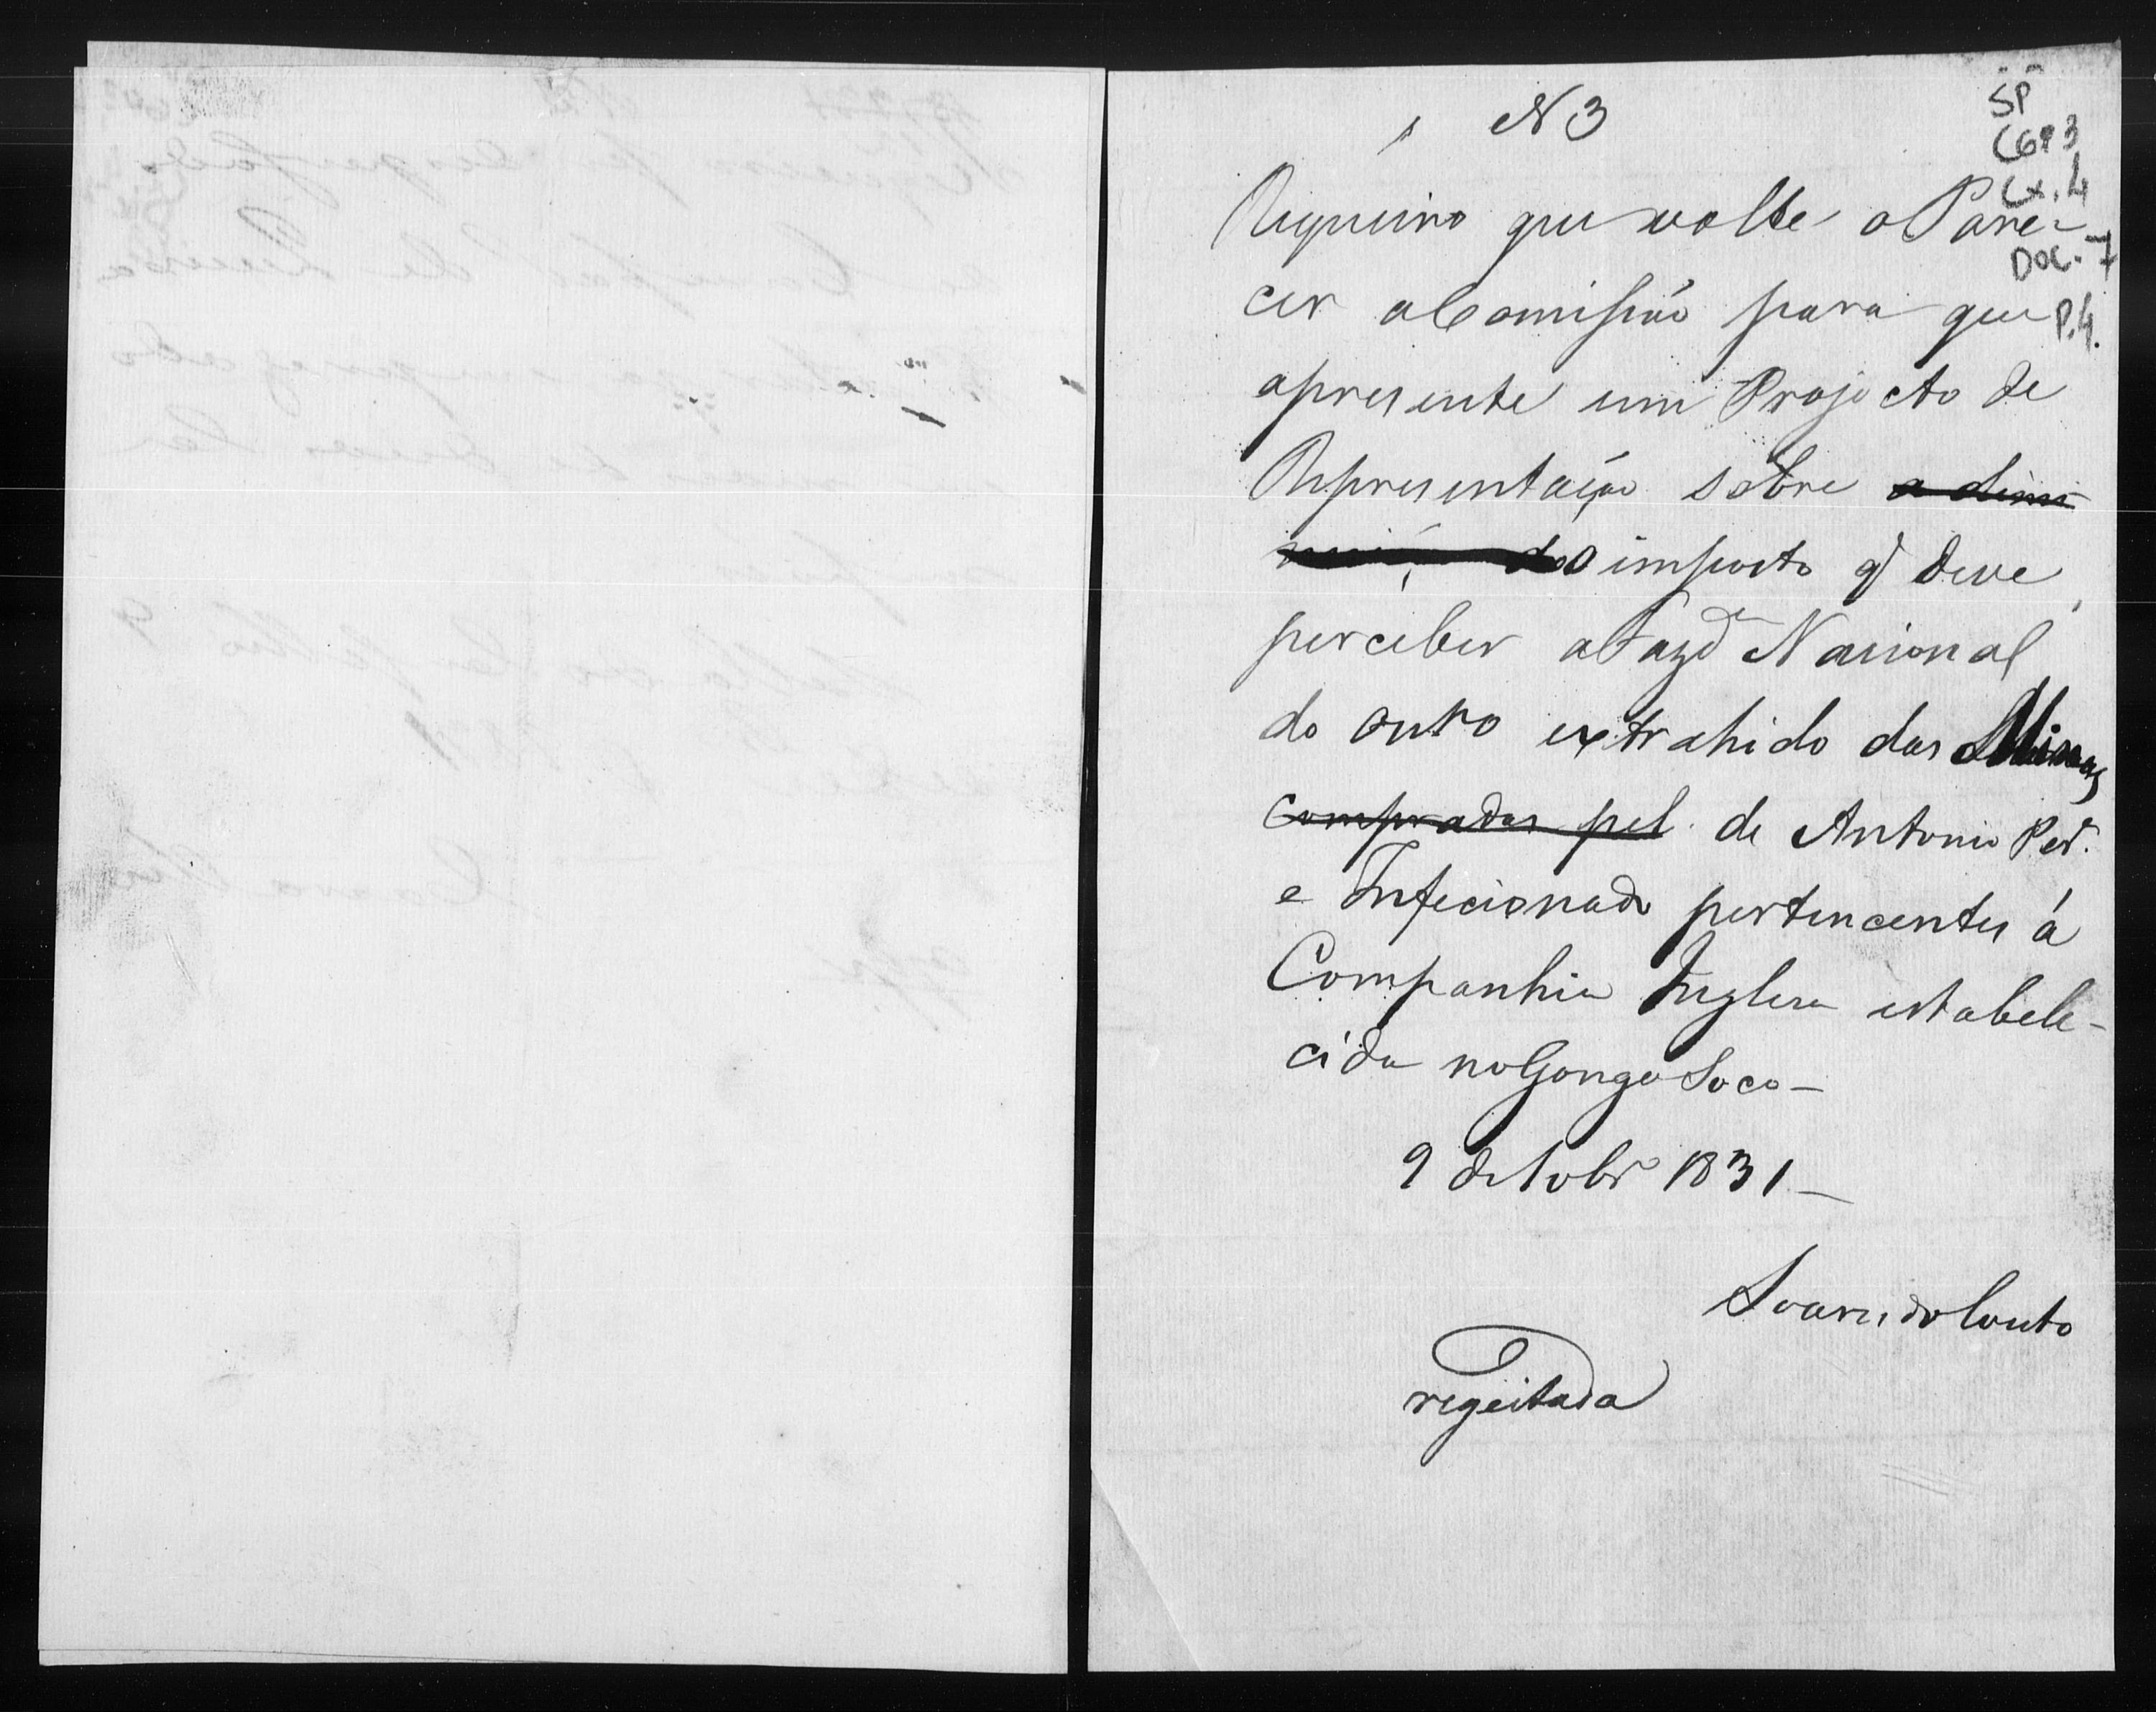 N 3
SP
CGP 3
Cx. 4
DOC. 7
P. 4.
Requeiro que volte o Pare-
cer a Comissaõ para que
apresente um Projecto de
Representação sobre a dimi
nuição do o imposto q̃ deve
perceber a Fazdᵃ Nacional
do ouro extrahido das Minas
compradas pel de Antonio Perᵃ
e Inficionado pertencentes á
Companhia Inglesa estabele-
cida no Gongo Soco —
9 de 1831 —
Soares do Couto
regeitada